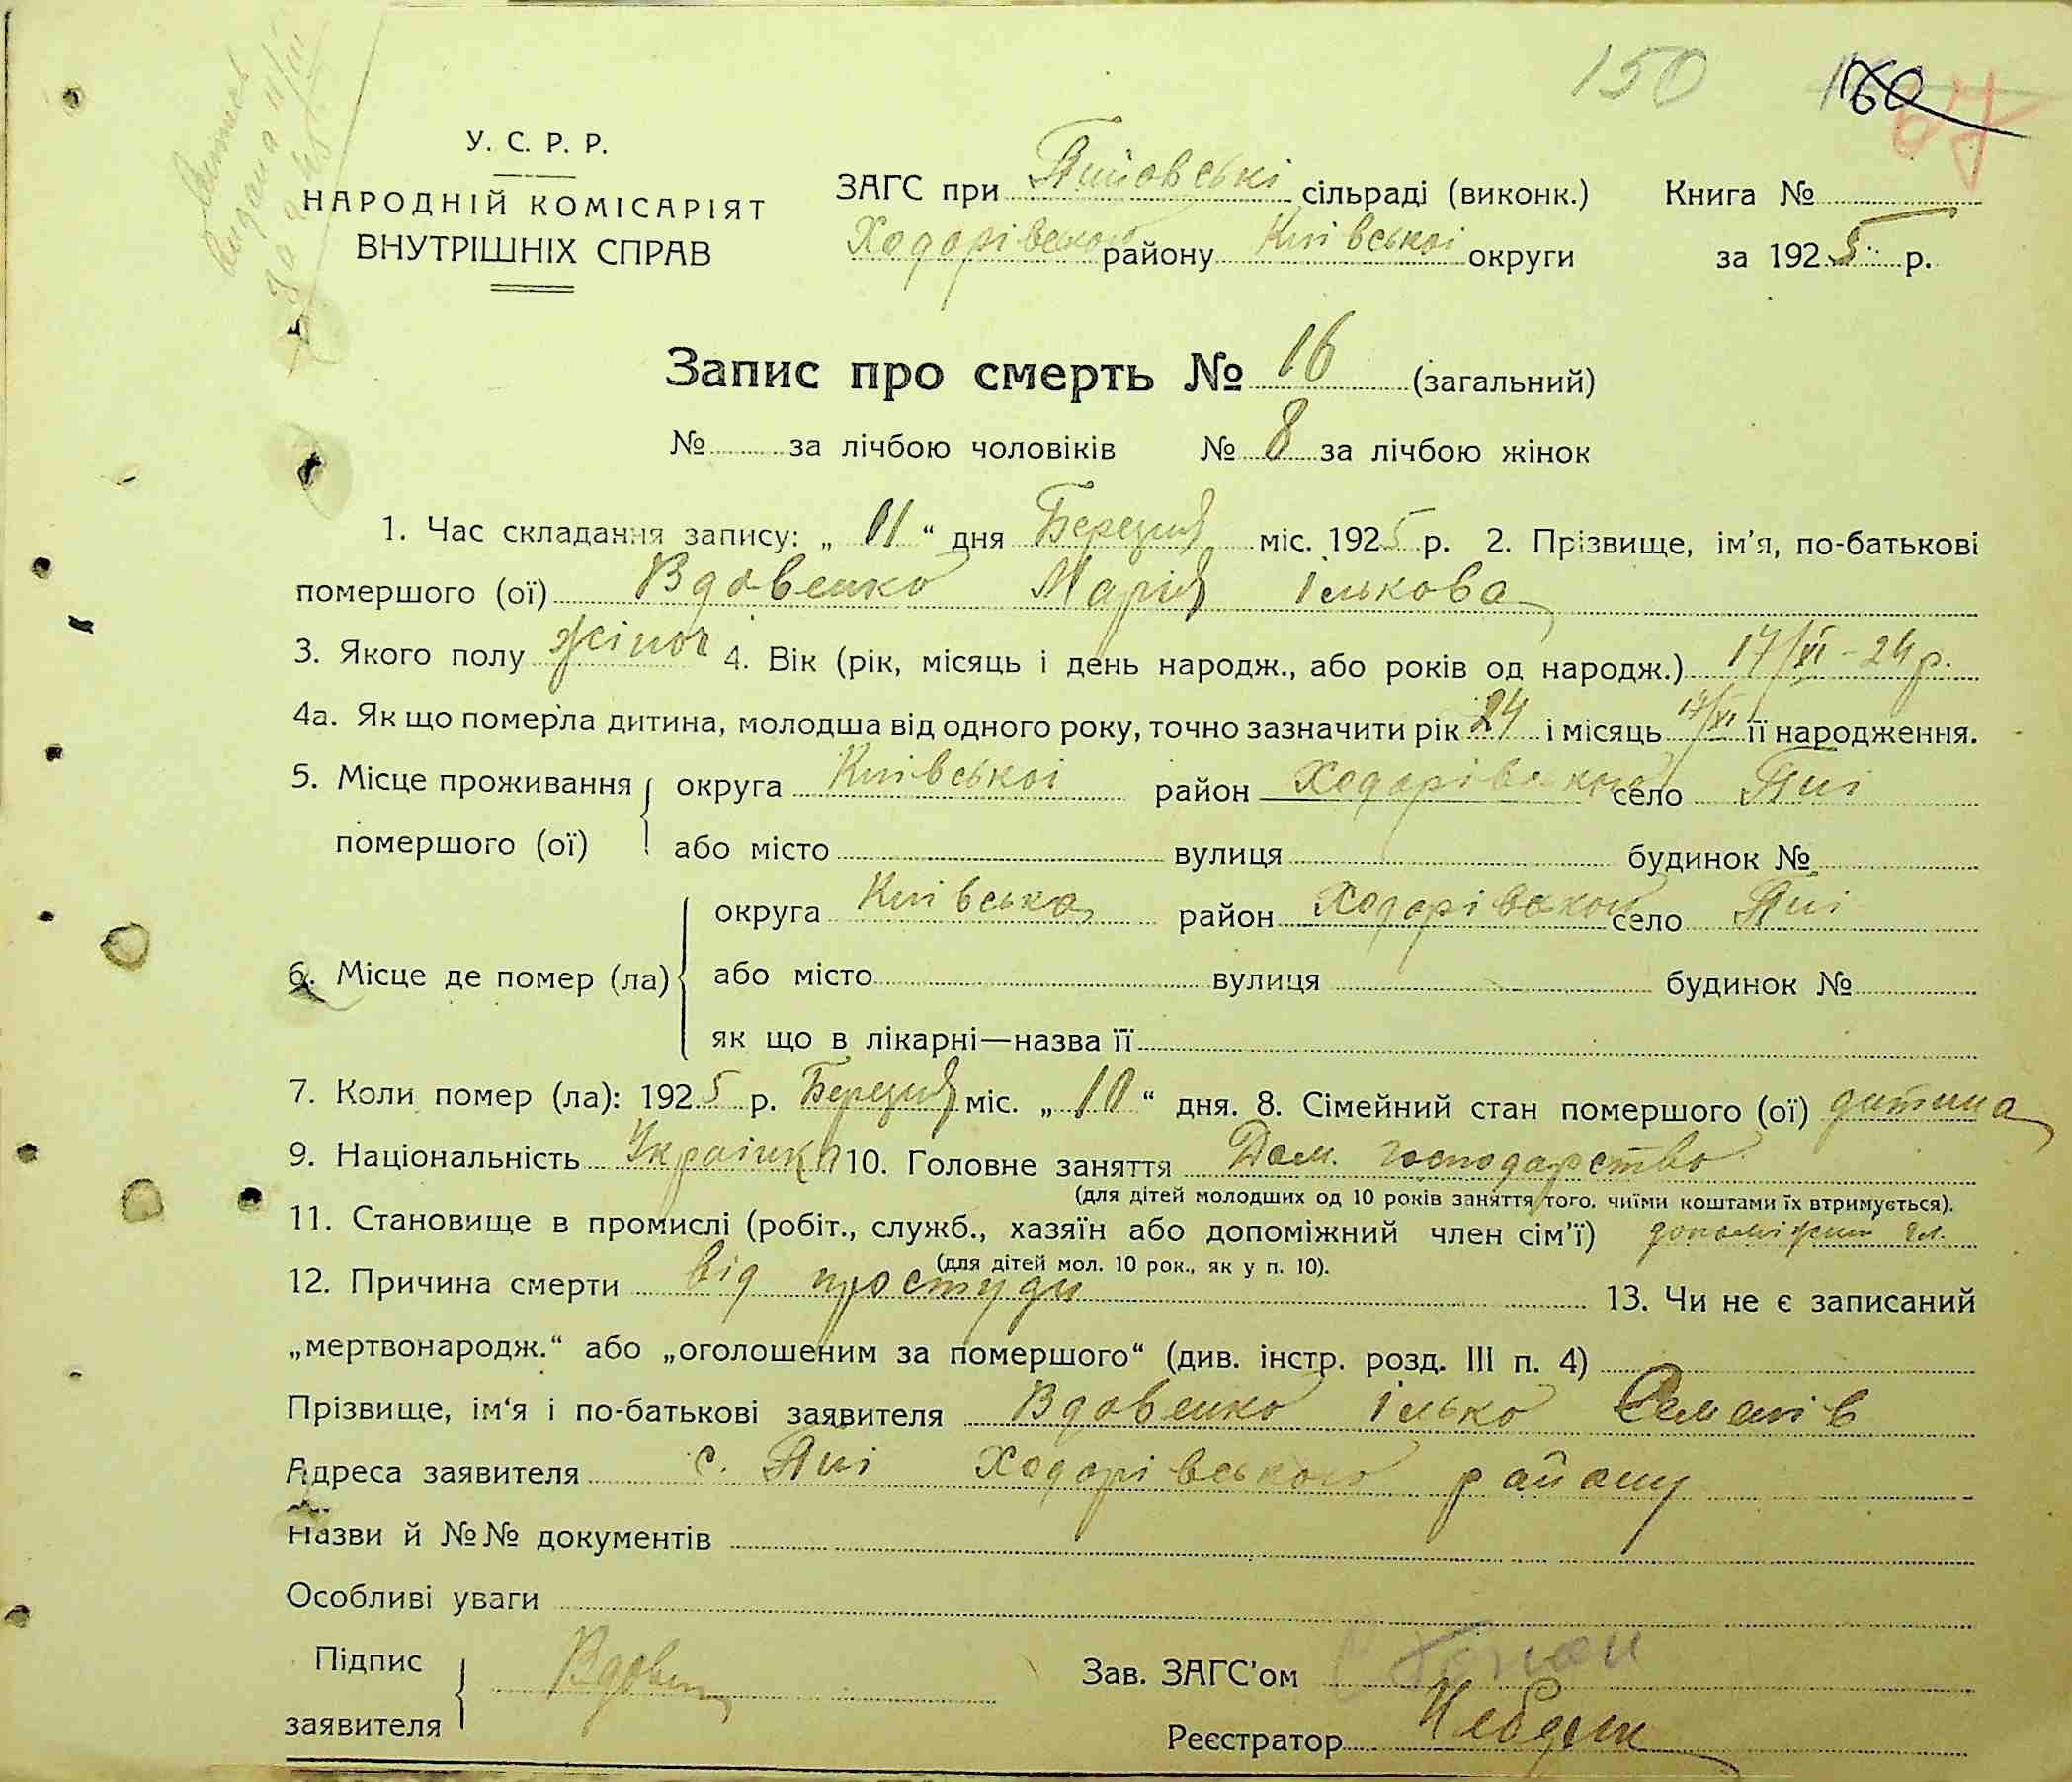 150 160 67
У. С. Р. Р.
НАРОДНІЙ КОМІСАРІЯТ
ВНУТРІШНІХ СПРАВ
ЗАГС при сільраді (виконк.) Книга №
Ходорівського району Київської округи за 1925 р.
Запис про смерть № 16 (загальний)
№ за лічбою чоловіків № 8 за лічбою жінок
1. Час складання запису: „ 11 “ дня Березня міс. 1925 р. 2. Прізвище, ім’я, по-батькові
помершого (ої) Вдовенко Марія Ількова
3. Якого полу жіноч 4. Вік (рік, місяць і день народж., або років од народж.) 17/XI - 24 р.
4а. Як що померла дитина, молодша від одного року, точно зазначити рік 24 і місяць 17/XI її народження.
5. Місце проживання округа Київської район Ходорівского село Яні
помершого (ої) або місто вулиця будинок №
округа Київська район Ходорівского село Яні
6. Місце де помер (ла) або місто вулиця будинок №
як що в лікарні—назва її
7. Коли помер (ла): 1925 р. Березня міс. „ 10 “ дня. 8. Сімейний стан помершого (ої) дитина
9. Національність Українка 10. Головне заняття Дом. господарство
(для дітей молодших од 10 років заняття того, чиїми коштами їх втримується).
11. Становище в промислі (робіт., служб., хазяїн або допоміжний член сім’ї) допоміжний чл.
(для дітей мол. 10 рок., як у п. 10).
12. Причина смерти від простуди 13. Чи не є записаний
„мертвонародж.“ або „оголошеним за помершого“ (див. інстр. розд. III п. 4)
Прізвище, ім‘я і по-батькові заявителя Вдовенко Ілько Семенів
Адреса заявителя с. Яні Ходорівського району
Назви й №№ документів
Особливі уваги
Підпис заявителя Вдовен
Зав. ЗАГС’ом
Реєстратор